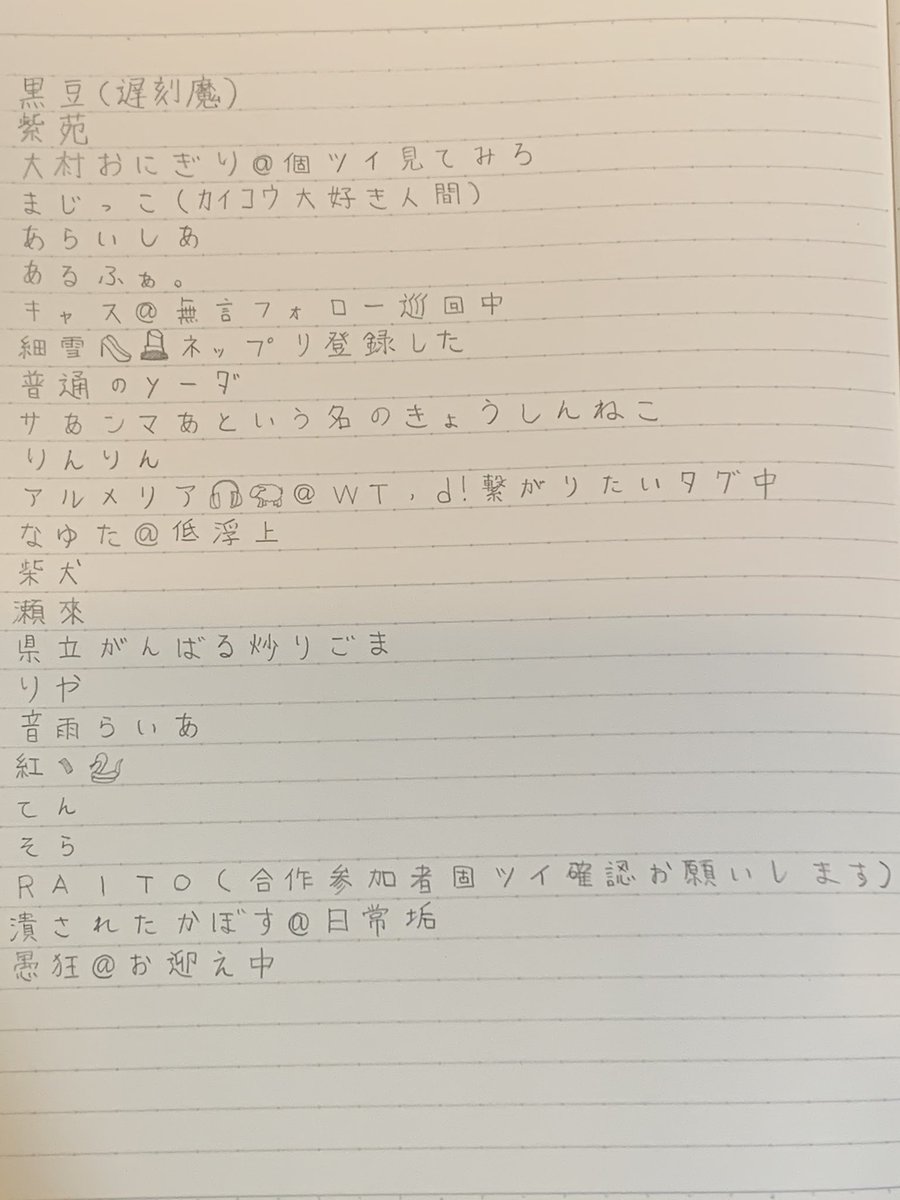 黒豆(遅刻魔)
紫苑
大村おにぎり@個ツイ見てみろ
まじっこ(カイコウ大好き人間)
あらいしあ
あるふぁ。
キャス@無言フォロー巡回中
細雪👠🪦ネップリ登録した
普通のソーダ
サあンマあという名のきょうしんねこ
りんりん
アルメリア🎧🐖@WT,d!繋がりたいタグ中
なゆた@低浮上
柴犬
瀬來
県立がんばる炒りごま
りや
音雨らいあ
紅🥢🦢
てん
そら
RAITO(合作参加者固ツイ確認お願いします)
潰されたかぼす@日常垢
愚狂@お迎え中